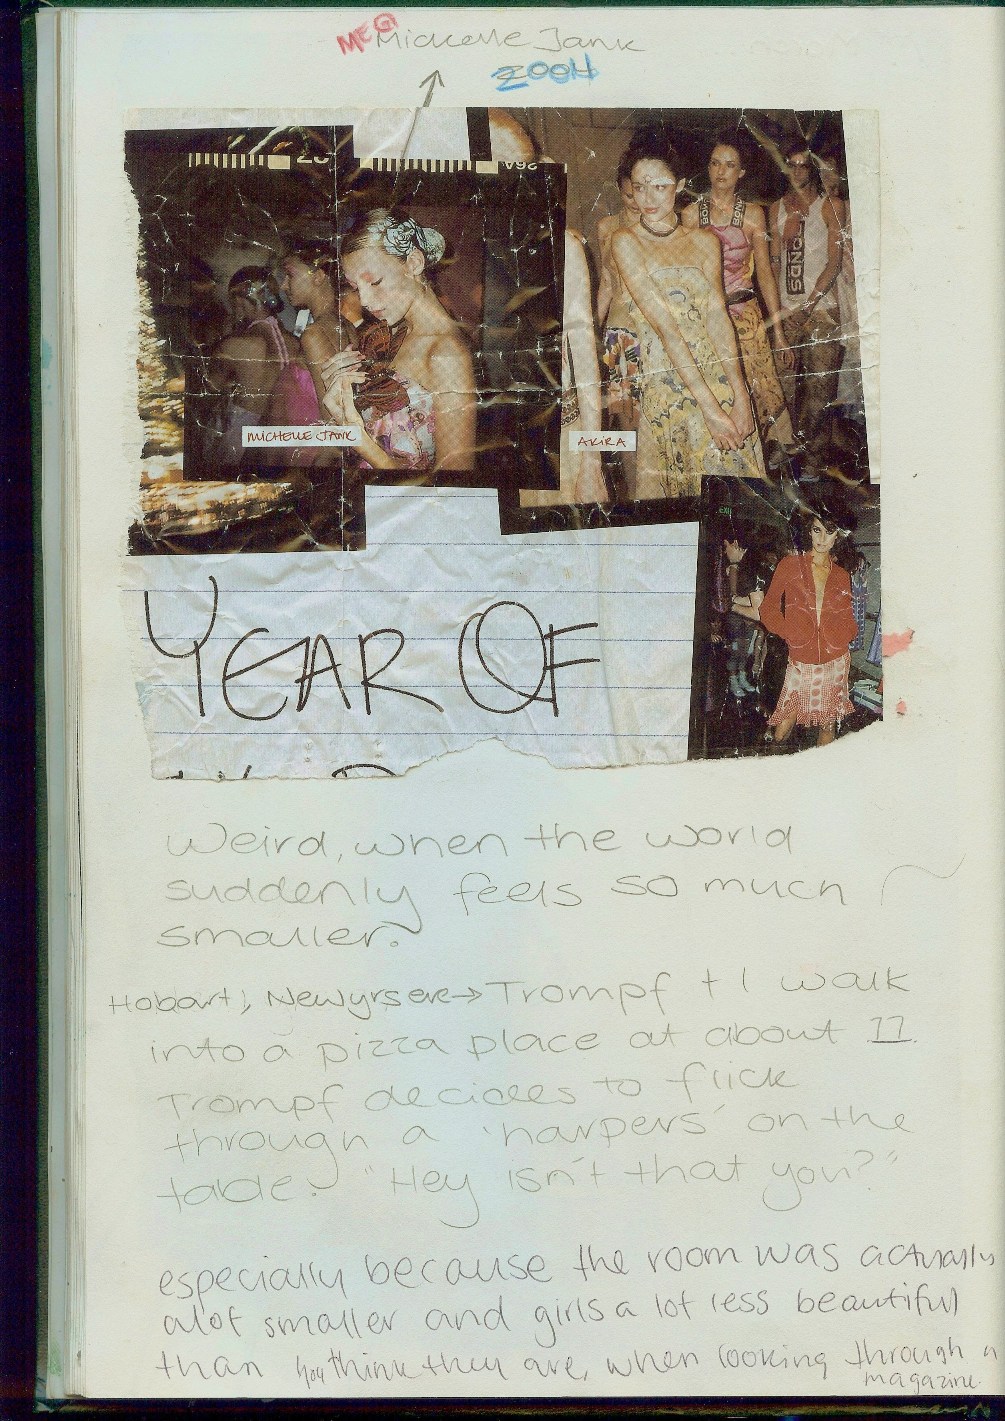 MEG Michelle Jank
2004
MICHELLE JANK
AKiRA
BOND
YEAR OF
Weird, when the world
suddenly feels so much
smaller.
Hobart, Newyrs eve → Trompf + I walk
into a pizza place at about 11.
Trompf decides to flick
through a 'harpers' on the
table. "Hey isn't that you?"
especially because the room was actually
alot smaller and girls a lot less beautiful
than you think they are, when looking through a
magazine.